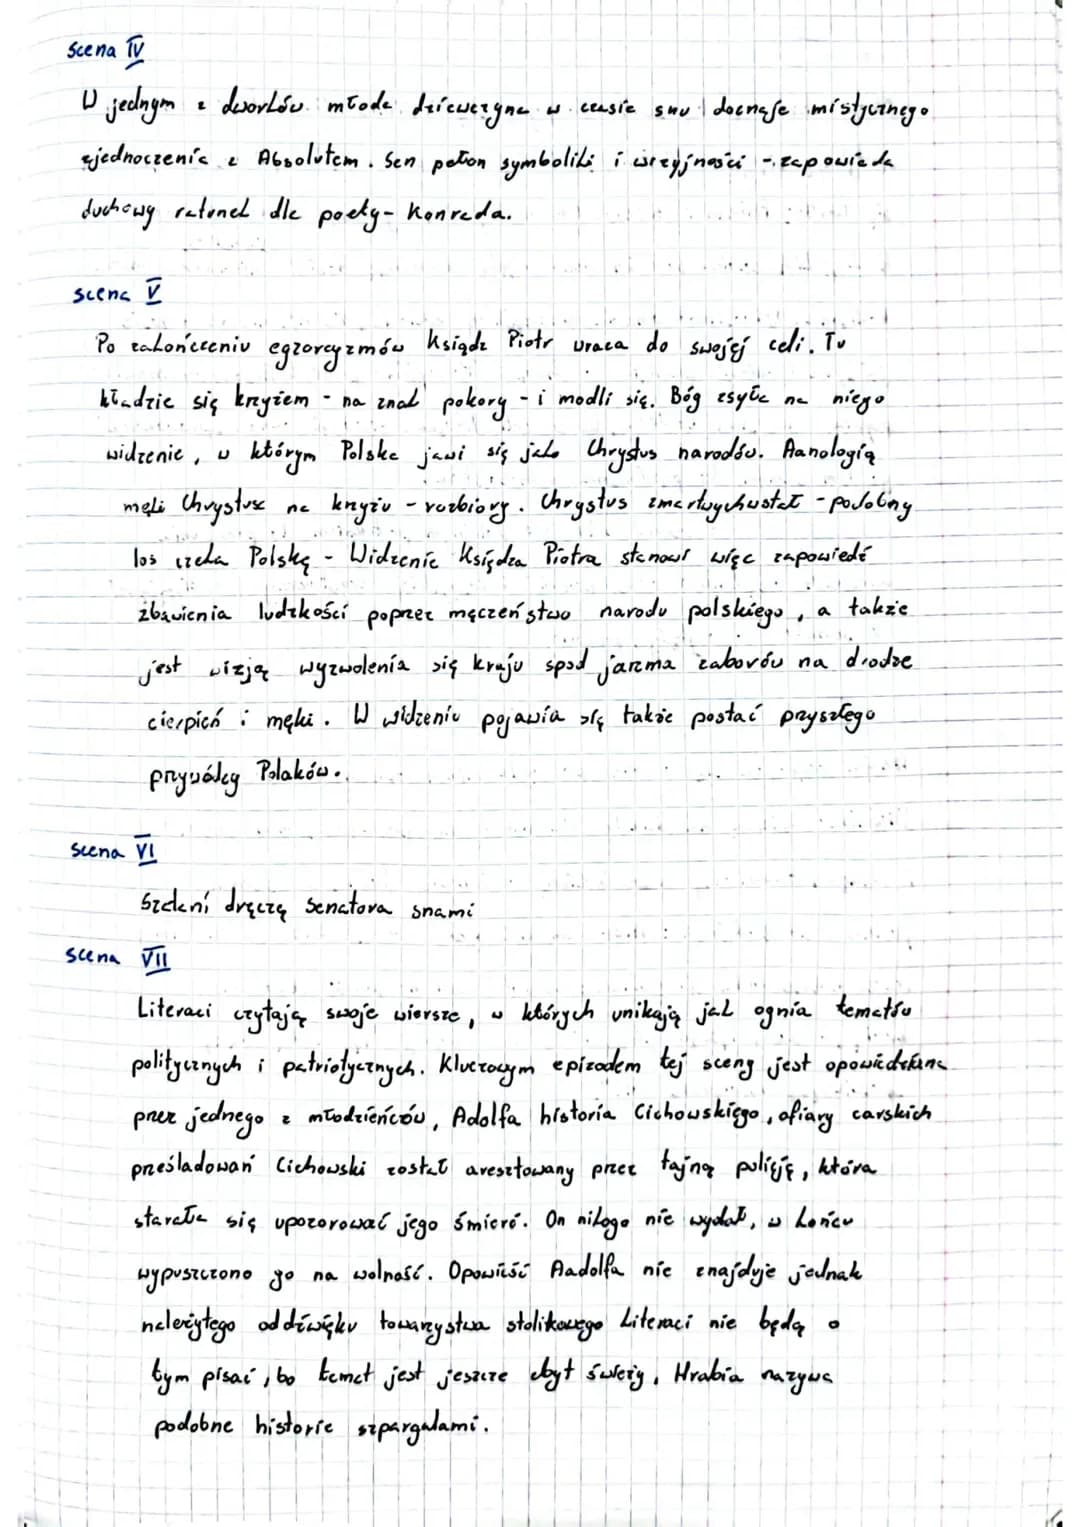 scena IV
W jednym z dworków młoda dziewczyna w czasie snu doznaje mistycznego
zjednoczenia z Absolutem. Sen pełion symboliki i wizyjności - zapowiada
duchowy ratunek dla poety - Konrada.
scena V
Po zakończeniu egzorcyzmów Ksiądz Piotr wraca do swojej celi. Tu
kładzie się krzyżem - na znak pokory - i modli się. Bóg zsyła na niego
widzenie, w którym Polska jawi się jako Chrystus narodów. Aanologią
męki Chrystusa na krzyżu - rozbiory. Chrystus zmartwychwstał - podobny
los czeka Polskę - Widzenie Księdza Piotra stanowi więc zapowiedź
zbawienia ludzkości poprzez męczeństwo narodu polskiego, a także
jest wizją wyzwolenia się kraju spod jarzma zaborów na drodze
cierpień i męki. W widzeniu pojawia się także postać przyszłego
przywódcy Polaków.
scena VI
Szatani dręczą Senatora snami
scena VII
Literaci czytają swoje wiersze, w których unikają jak ognia tematów
politycznych i patriotycznych. Kluczowym epizodem tej sceny jest opowiedziana
przez jednego z młodzieńców, Adolfa historia Cichowskiego, ofiary carskich
prześladowań Cichowski został aresztowany przez tajną policję, która
starała się upozorować jego śmierć. On nikogo nie wydał, w końcu
wypuszczono go na wolność. Opowieść Aadolfa nie znajduje jednak
należytego oddźwięku towarzystwa stolikowego Literaci nie będą o
tym pisać, bo temat jest jeszcze zbyt świeży, Hrabia nazywa
podobne historie szpargałami.